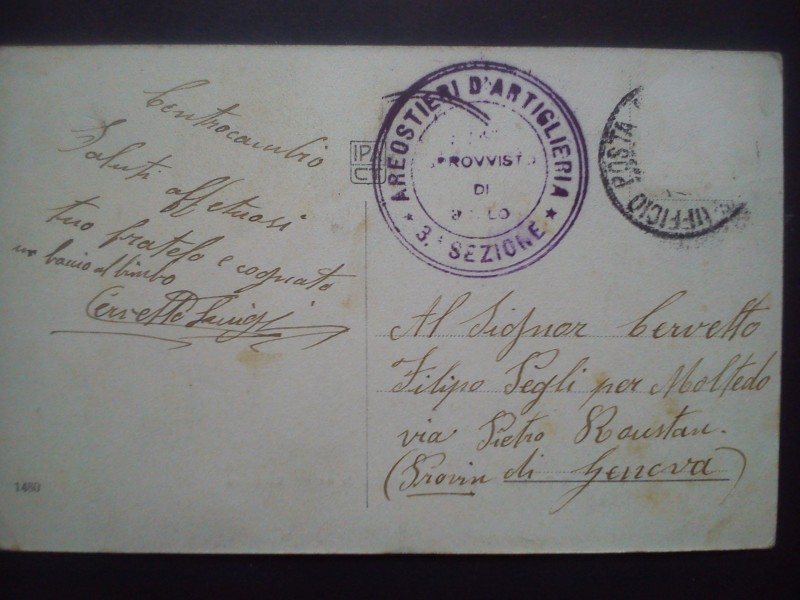 Centrocambio
Saluti affetuosi
tuo fratelo e cognato
un bacio al bimbo
Cervetto Luigi
1460
IP
C
AREOSTIERI D'ARTIGLIERIA
★ 3.ª SEZIONE ★
SPROVVISTO
DI
UFFICIO POSTA
Al Signor Cervetto
Filipo Pegli per Moltedo
via Pietro Roustan.
(Provin di Genova)